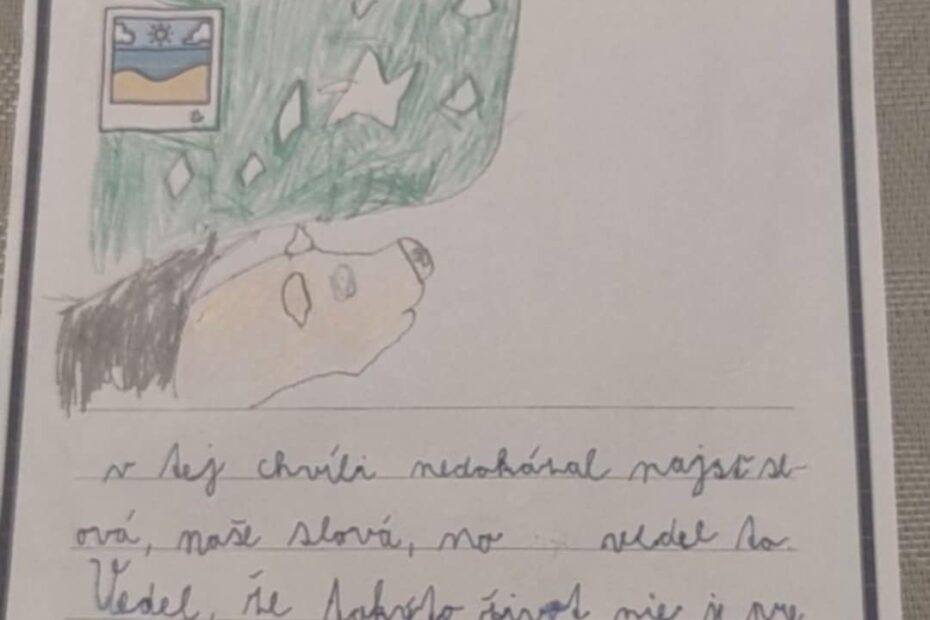 v tej chvíli nedokázal nájsť sl-
ová, naše slová, no vedel to.
Vedel, že takýto život nie je pre